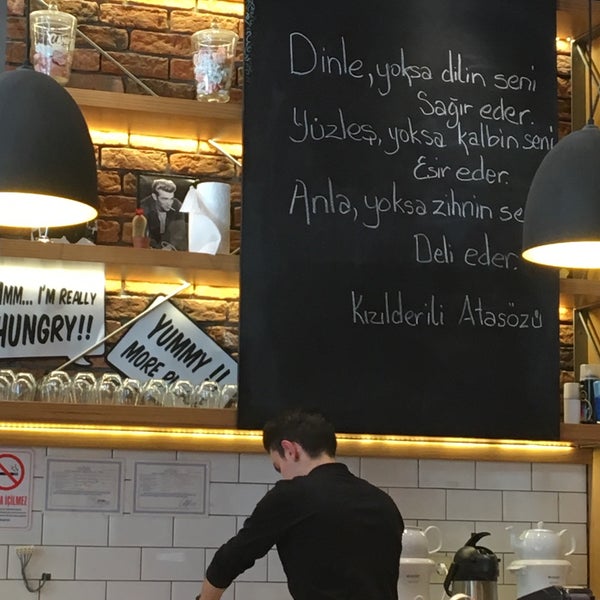 Dinle, yoksa dilin seni
Sağır eder.
Yüzleş, yoksa kalbin seni
Esir eder.
Anla, yoksa zihnin se
Deli eder.
Kızılderili Atasözü
MM... I'M REALLY
HUNGRY!!
YUMMY!!
MORE
İÇİLMEZ